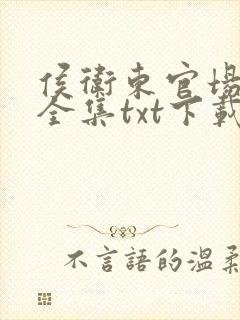 侯衛東官場
全集txt下載
不言語的温柔